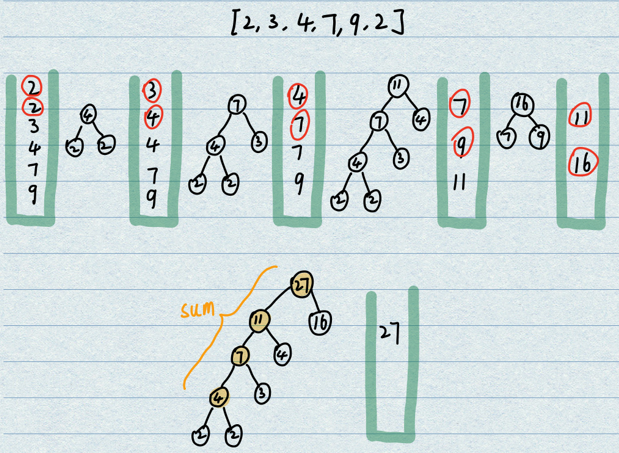 [2,3.4.7,9.2]
2
2
3
4
7
9
4
2 2
3
4
4
7
9
7
4 3
2 2
4
7
7
9
11
7 4
4 3
2 2
7
9
11
16
7 9
11
16
sum
27
11 16
7 4
4 3
2 2
27